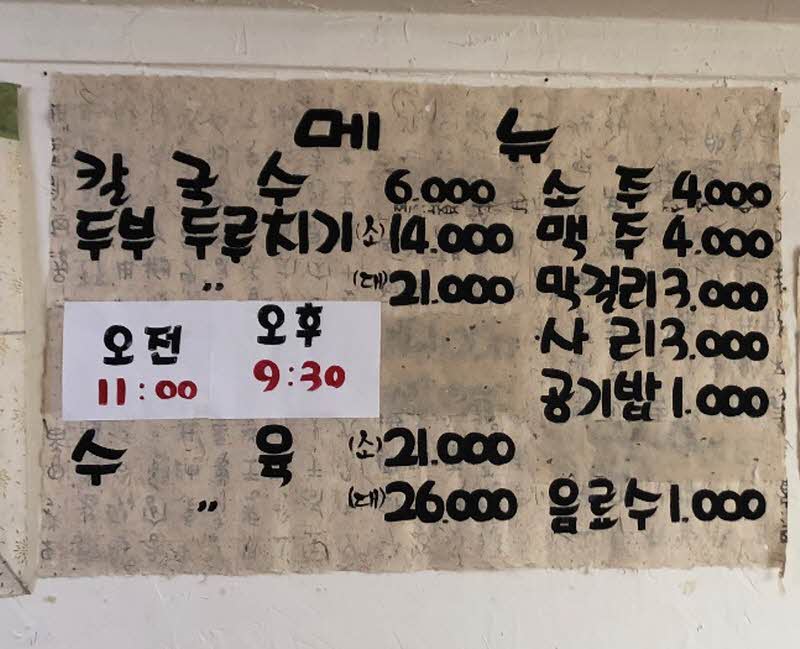 메 뉴
칼 국 수 6.000 소 주 4.000
두부 두루치기 (소) 14.000 맥 주 4.000
" (대) 21.000 막걸리 3.000
사 리 3.000
오전 오후
11:00 9:30
공기밥 1.000
수 육 (소) 21.000
" (대) 26.000 음료수 1.000